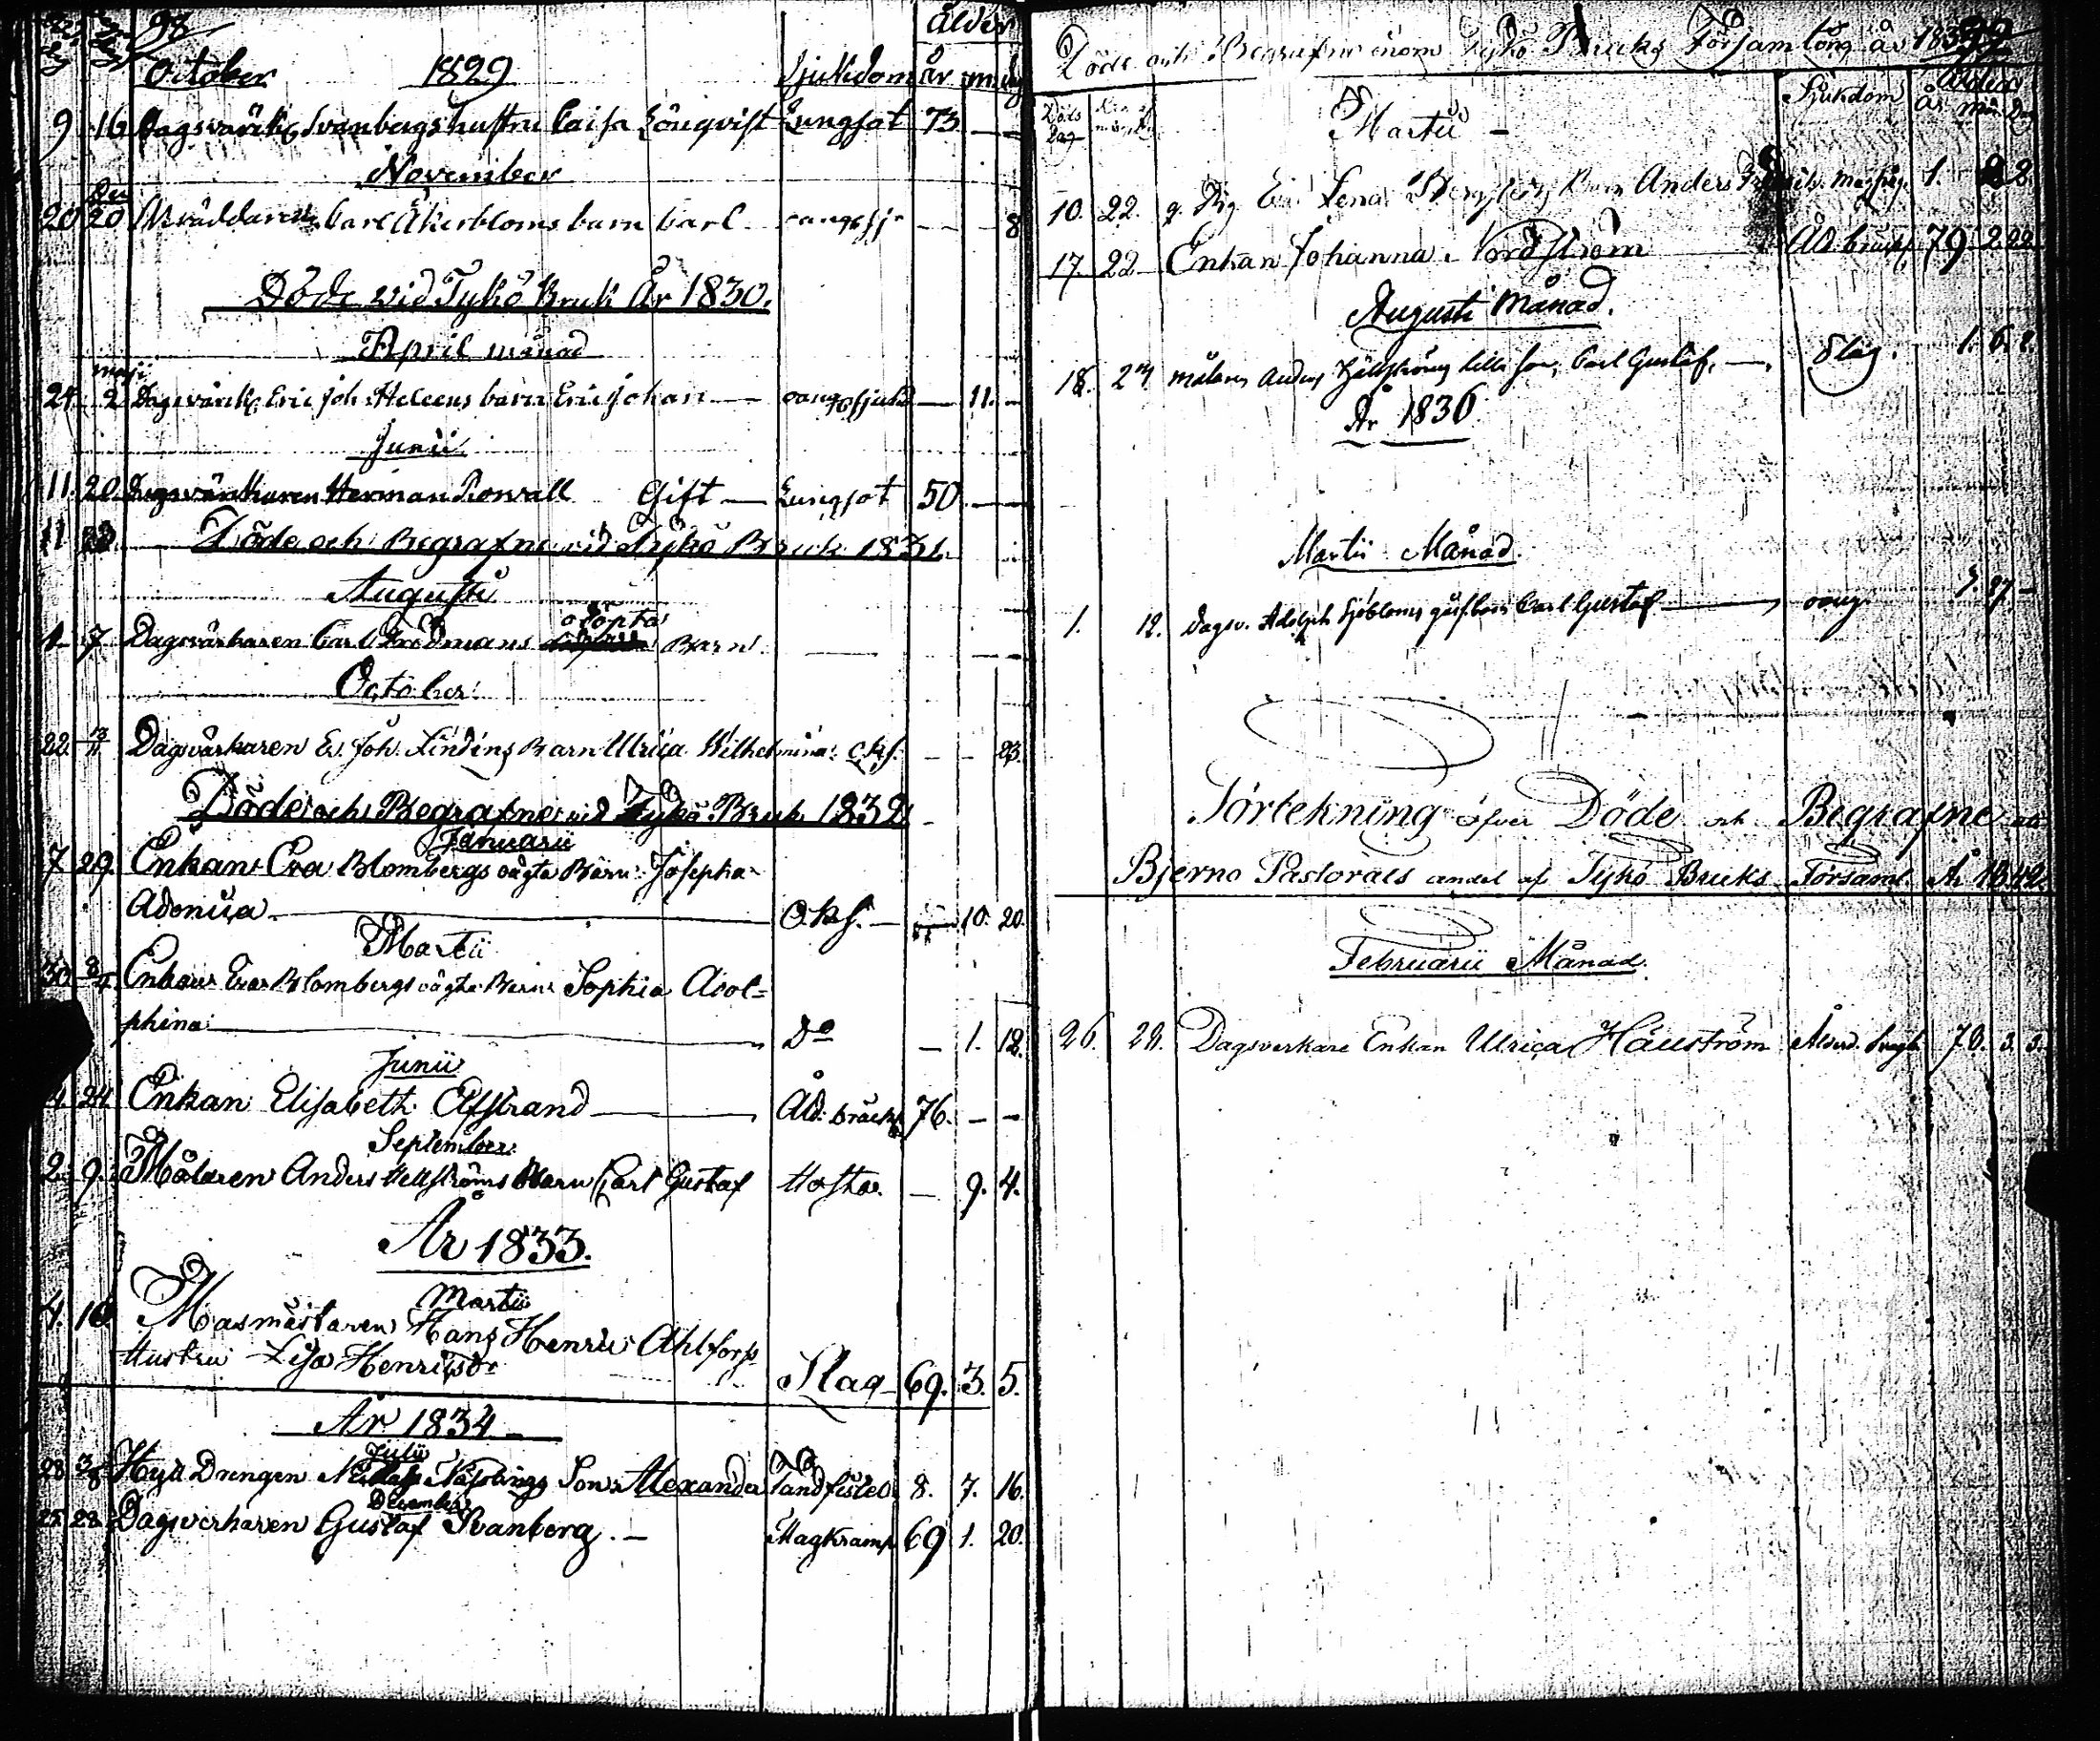 98
October 1829 Sjukdom ålder år m dg
9 16 Dagsvärk. Svanbergs hustru Caisa Lönqvist Lungsot 73 — —
November
20 Den 20 Skräddaren Carl Åkerbloms barn Carl — — 8
Döde vid Tykö Bruk År 1830.
April månad
24 maji 2 Dagsvärk. Eric Joh. Heleens barn Eric Johan — — 11. —
Junii
11. 20. Dagsvärkaren Herman Rosvall Gift — Lungsot 50 — —
11 Döde och Begrafne vid Tykö Bruk 1831.
Augusti
1 7 Dagsvärkaren Carl Fredmans odöpta Barn — —
October
22 12/11 Dagsvärkaren E. Joh. Lindens Barn Ulrica Wilhelmina — — 23.
Döde och Begrafne vid Tykö Bruk 1832
Januarii
7 29. Enkan Eva Blombergs oägta Barn Josepha
Adonica — O.K.s. — 10. 20.
Martii
30 8/4 Enkans Eva Blombergs oägta Barn Sophia Adol=
phina — Do — 1. 12.
Junii
4. 24 Enkan Elisabeth Efstrand — Åld. bräckl. 76. — —
September
2. 9. Målaren Anders Hellströms Barn Carl Gustaf Hosta — 9. 4.
År 1833.
Martii
4. 10 Masmästaren Hans Henric Ahlfors
Hustru Lisa Henricsdr Slag 69. 3. 5.
År 1834
Julii
28 3/8 Hytt Drengen Son Alexander Tandfistel 8. 7. 16.
December
25. 28. Dagsverkaren Gustaf Svanberg. — Magkramp 69 1. 20.
99
Döde och Begrafne inom Tykö Bruks Församling år
Döds Dag Sjukdom Ålder år mån Dag
Martii —
10. 22. Lena Barn Anders 1.
17. 22 Enkan Johanna Nordström Åld. bräckl. 79. 2. 22.
Augusti Månad.
18. 24 målaren Anders Hällströms lilla son, Carl Gustaf. — Slag. 1. 6. 2.
År 1836
Martii Månad.
1. 12. Dagsv. Adolph Sjöbloms Carl Gustaf — 27. —
Förtekning öfver Döde och Begrafne
Bjerno Pastorats andel af Tykö Bruks Församl. År 1842.
Februarii Månad.
26. 29. Dagsverkare Enkan Ulrica Ålderd. 70. 3. 3.